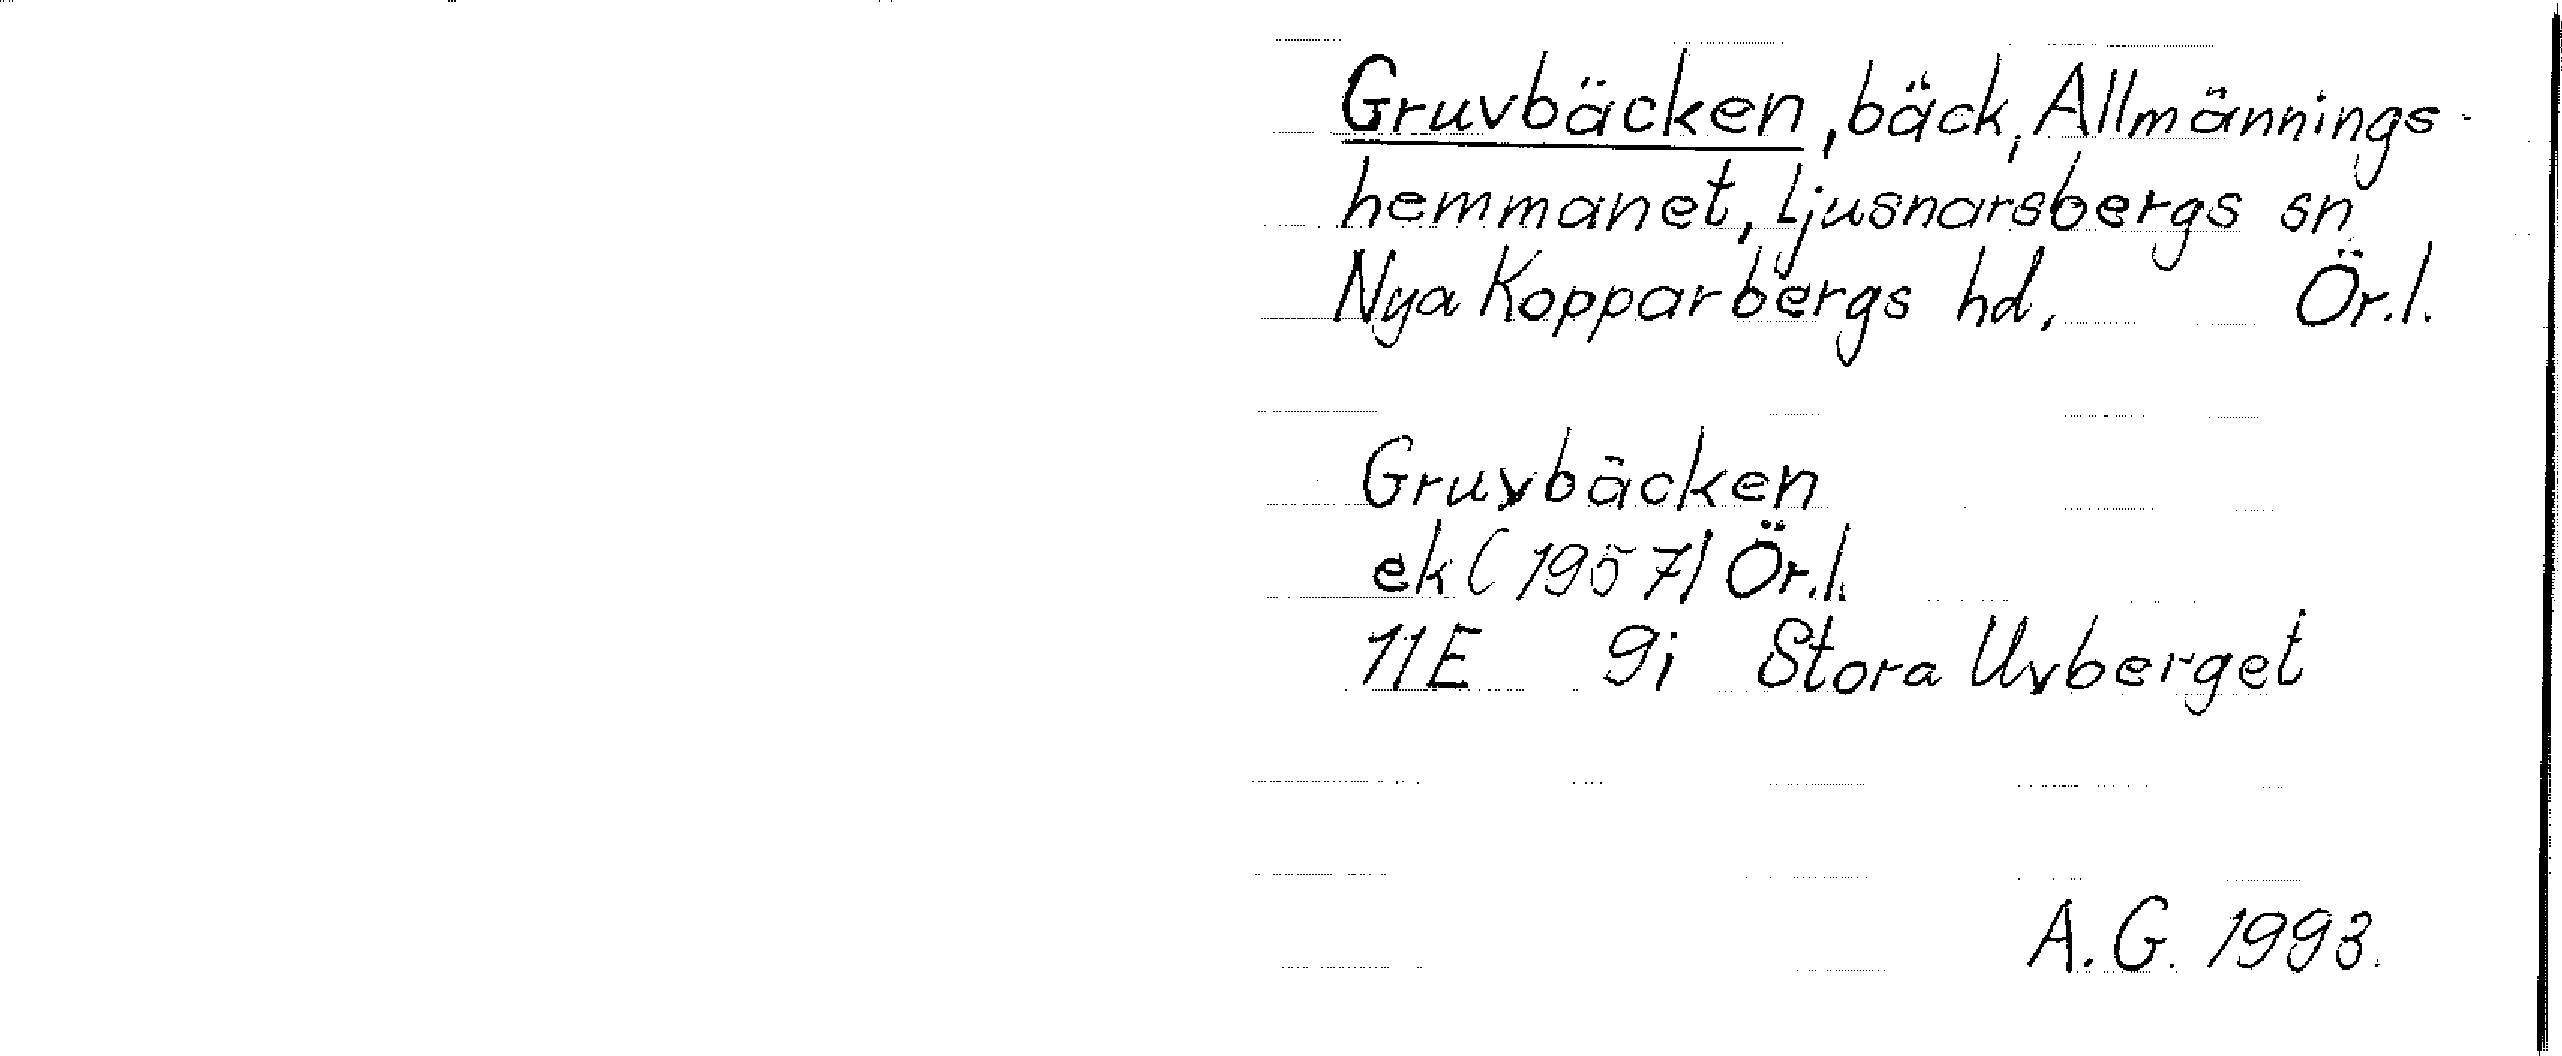 Gruvbäcken, bäck, Allmännings-
hemmanet, Ljusnarsbergs sn
Nya Kopparbergs hd, Ör.l.
Gruvbäcken
ek (1957) Ör.l.
11E 9i Stora Uvberget
A.G. 1993.